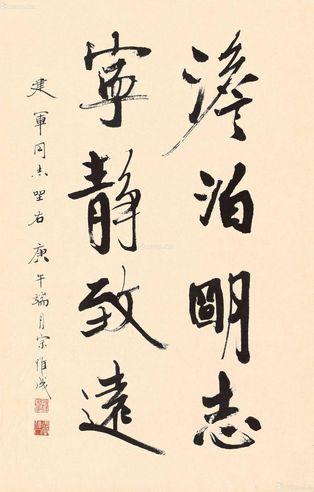 澹泊明志
寧靜致遠
建軍同志座右 庚午端月宗惟成